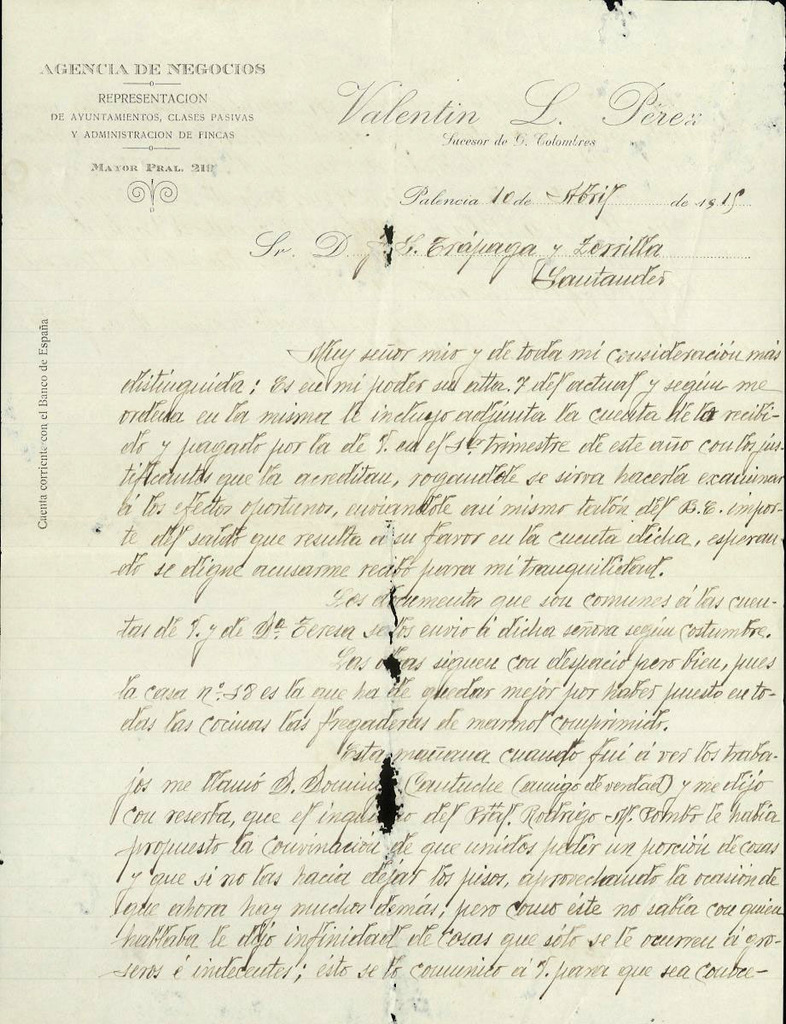 AGENCIA DE NEGOCIOS
REPRESENTACION
DE AYUNTAMIENTOS, CLASES PASIVAS
Y ADMINISTRACION DE FINCAS
MAYOR PRAL. 219
Valentin L. Pérez
Sucesor de G. Colombres
Palencia 10 de Abril de 1915
Sr. D. J. L. Trápaga y Zorrilla
Santander
Cuenta corriente con el Banco de España
Muy señor mio y de toda mi consideración más
distinguida: Es en mi poder su atta. 7 del actual y según me
ordena en la misma le incluyo adjunta la cuenta de lo recibi-
do y pagado por la de V. en el 1er trimestre de este año con los jus-
tificantes que la acreditan, rogandole se sirva hacerla examinar
á los efectos oportunos, enviandole asi mismo talón del B. E. impor-
te del saldo que resulta á su favor en la cuenta dicha, esperan-
do se digne acusarme recibo para mi tranquilidad.
Los documentos que son comunes á las cuen-
tas de V. y de Dª. Teresa se los envio á dicha señora según costumbre.
Las obras siguen con despacio pero bien, pues
la casa nº. 18 es la que ha de quedar mejor por haber puesto en to-
das las cocinas las fregaderas de marmol comprimido.
Esta mañana cuando fui á ver los traba-
jos me llamó D. (amigo de verdad) y me dijo
con reserba, que el inquilino del Pral. Rodrigo M. Pombo le había
propuesto la convinación de que unidos pedir un porción de cosas
y que si no las hacia dejar los pisos, aprovechando la ocasión de
que ahora hay muchos demás; pero como éste no sabía con quien
hablaba le dijo infinidad de cosas que sólo se le ocurren á gro-
seros é indecentes; ésto se lo comunico á V. para que sea conoce-